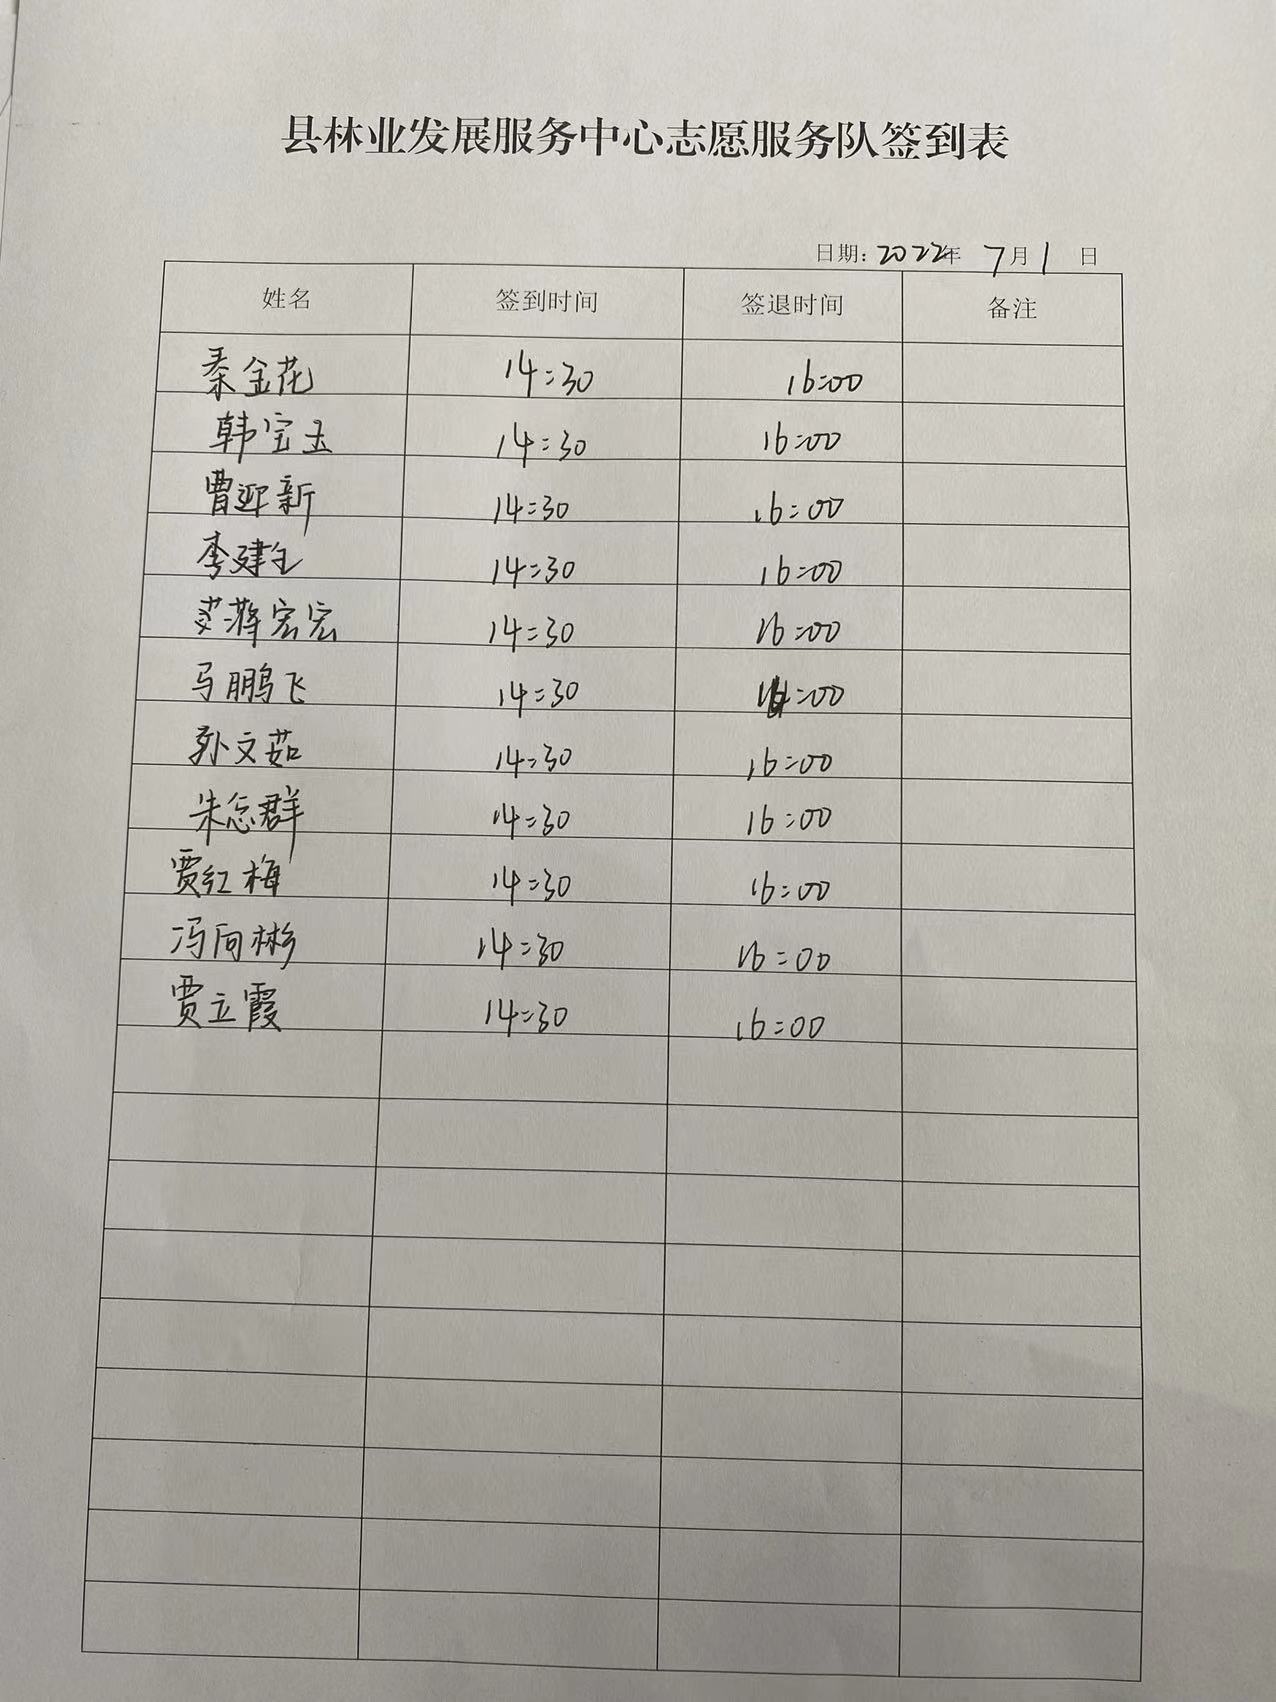 县林业发展服务中心志愿服务队签到表
日期: 2022年 7月1 日
姓名 签到时间 签退时间 备注
秦金花 14:30 16:00
韩宝玉 14:30 16:00
曹迎新 14:30 16:00
李建全 14:30 16:00
蒋宏宏 14:30 16:00
马鹏飞 14:30 16:00
孙文茹 14:30 16:00
朱忽群 14:30 16:00
贾红梅 14:30 16:00
冯向彬 14:30 16:00
贾立霞 14:30 16:00